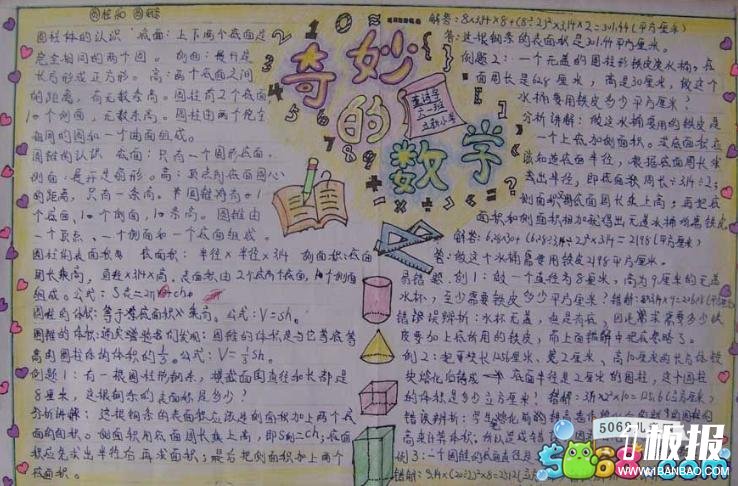 圆柱和圆锥
圆柱体的认识 底面:上下两个底面是
完全相同的两个圆。侧面:展开是
长方形或正方形。高:两个底面之间
的距离,有无数条高。圆柱有2个底面
1个侧面,无数条高。圆柱由两个完全
相同的圆和一个曲面组成。
圆锥的认识 底面:只有一个圆形底面,
侧面:展开是扇形。高:顶点到底面圆心
的距离,只有一条高。圆锥有1
个底面,1个侧面,1条高。圆锥由
一个顶点、一个侧面和一个底面组成。
圆柱的表面积 底面积:半径×半径×3.14 侧面积:底面
周长乘高,直径×3.14×高。表面积由2个底面
组成。公式:
圆柱的体积:等于底面积乘高。公式:V=sh。
圆锥的体积:圆锥的体积是与它等底等
高的圆柱体的体积的1/3。公式:V=1/3sh。
例题1:有一根圆柱形钢条,横截面圆直径和长都是
8厘米,这根钢条的表面积是多少?
分析讲解:这根钢条的表面积应该是侧面积加上两个底
面的面积。侧面积用底面周长乘上高,即S侧=ch,底面
积应先求出半径后再求面积;最后把侧面积加上两个
底面积。
奇妙的数学
六一班
解答:8×3.14×8+(8÷2)²×3.14×2=301.44(平方厘米)
答:这根钢条的表面积是301.44平方厘米。
例题2:一个无盖的圆柱形铁皮水桶,底
面周长是62.8厘米,高是30厘米,做这个
水桶要用铁皮多少平方厘米?
分析讲解:做这水桶要用的铁皮是
一个上底加侧面积。求底面积应
该知道底面半径,根据底面周长求
出半径,即底面周长÷3.14÷2;
侧面积用底面周长乘上高;再把底
面积和侧面积相加就得出无盖水桶所需铁皮
答:做这个水桶需要用铁皮2198平方厘米。
易错题 例1:做一个直径为8厘米,高为9厘米的无盖
水杯,至少需要铁皮多少平方厘米?错解:
错误辨析:水杯无盖,也是有底
皮要加上底所用的铁皮,而上面错解中把底忽略了。
例2:把 宽2厘米、高10厘米的长方体铁
块熔化后铸成一个底面半径是2厘米的圆柱,这个圆柱
的体积是多少立方厘米?错解:3.14×2²×10=125.6(立方厘米)
错误辨析:
例3:一个圆柱的底面直径是
错解:3.14×(20÷2)²×8=2512(立方
5068儿童网
5068.com
板报
WWW.1BANBAO.COM